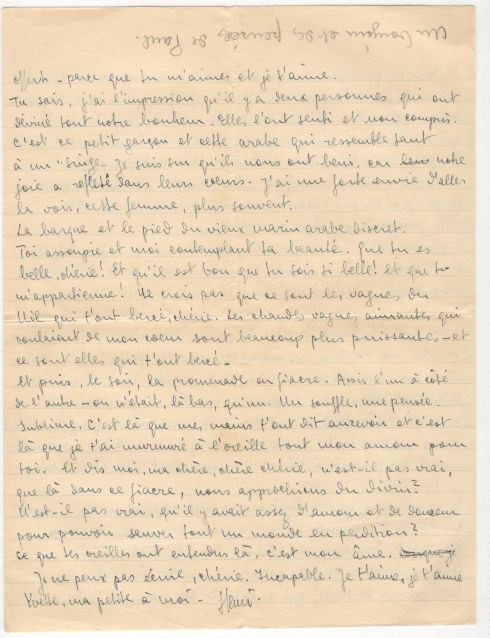 Un bonjour et des pensées de Paul.
offerts - parce que tu m'aimes et je t'aime.
Tu sais, j'ai l'impression qu'il y a deux personnes qui ont
deviné tout notre bonheur. Elles l'ont senti et non compris.
C'est ce petit garçon et cette arabe qui ressemble tant
à un "singe". Je suis sûr qu'ils nous ont béni, car leur notre
joie a reflété dans leurs cœurs. J'ai une forte envie d'aller
la voir, cette femme, plus souvent.
La barque et le pied du vieux marin arabe discret.
Toi assoupie et moi contemplant ta beauté. Que tu es
belle, chérie! Et qu'il est bon que tu sois si belle! et que tu
m'appartienne! Ne crois pas que ce sont les vagues du
Nil qui t'ont bercé, chérie. Les chaudes vagues aimantes qui
coulaient de mon cœur sont beaucoup plus puissantes - et
ce sont elles qui t'ont bercé -
Et puis, le soir, la promenade en fiacre. Assis l'un à côté
de l'autre - on n'était, là bas, qu'un. Un souffle, une pensée.
Sublime. C'est là que mes mains t'ont dit aurevoir et c'est
là que je t'ai murmuré à l'oreille tout mon amour pour
toi. Et dis moi, ma chère, chère chérie, n'est-il pas vrai,
que là dans ce fiacre, nous approchions du divin?
N'est-il pas vrai, qu'il y avait assez d'amour et de douceur
pour pouvoir sauver tout un monde en perdition?
Ce que tes oreilles ont entendu là, c'est mon âme.
Je ne peux pas écrire, chérie. Incapable. Je t'aime, je t'aime
Yvette, ma petite à moi -